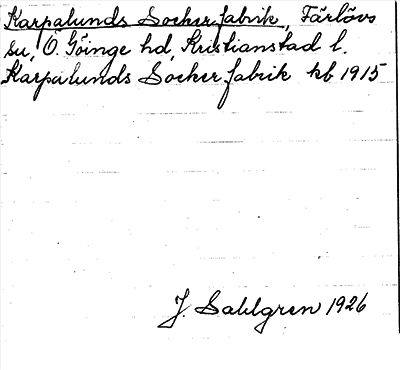 Karpalunds Sockerfabrik, Färlövs
sn, Ö. Göinge hd, Kristianstad l.
Karpalunds Sockerfabrik kb 1915
J. Sahlgren 1926